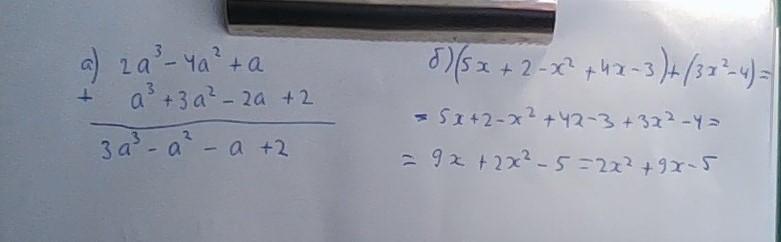 а) 2a³ - 4a² + a
+ a³ + 3a² - 2a + 2
3a³ - a² - a + 2
б) (5x + 2 - x² + 4x - 3) + (3x² - 4) =
= 5x + 2 - x² + 4x - 3 + 3x² - 4 =
= 9x + 2x² - 5 = 2x² + 9x - 5